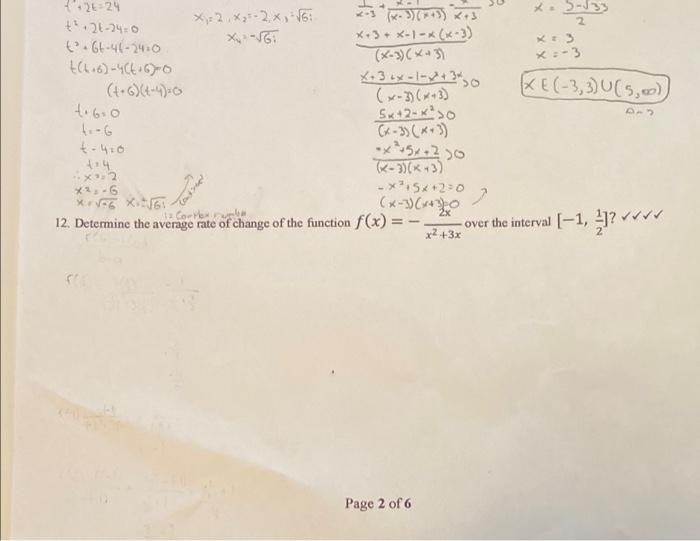 t² + 2t = 24
t² + 2t - 24 = 0
t² + 6t - 4t - 24 = 0
t(t+6) - 4(t+6) = 0
(t+6)(t-4) = 0
t + 6 = 0
t = -6
t - 4 = 0
t = 4
x² = -6
x = √-6
x₁ = 2, x₂ = -2, x₃ = √6i
x₄ = -√6i
x+3 + x-1 - x(x-3)
(x-3)(x+3)
x+3+x-1-x²+3x >0
(x-3)(x+3)
5x+2-x² >0
(x-3)(x+3)
-x²+5x+2 >0
(x-3)(x+3)
-x²+5x+2=0
(x-3)(x+3)=0
x = 5-√33
2
x = 3
x = -3
x ∈ (-3,3)∪(5,∞)
12. Determine the average rate of change of the function f(x) = − 2x / x² +3x over the interval [−1, 1/2]? ✓✓✓✓
Page 2 of 6